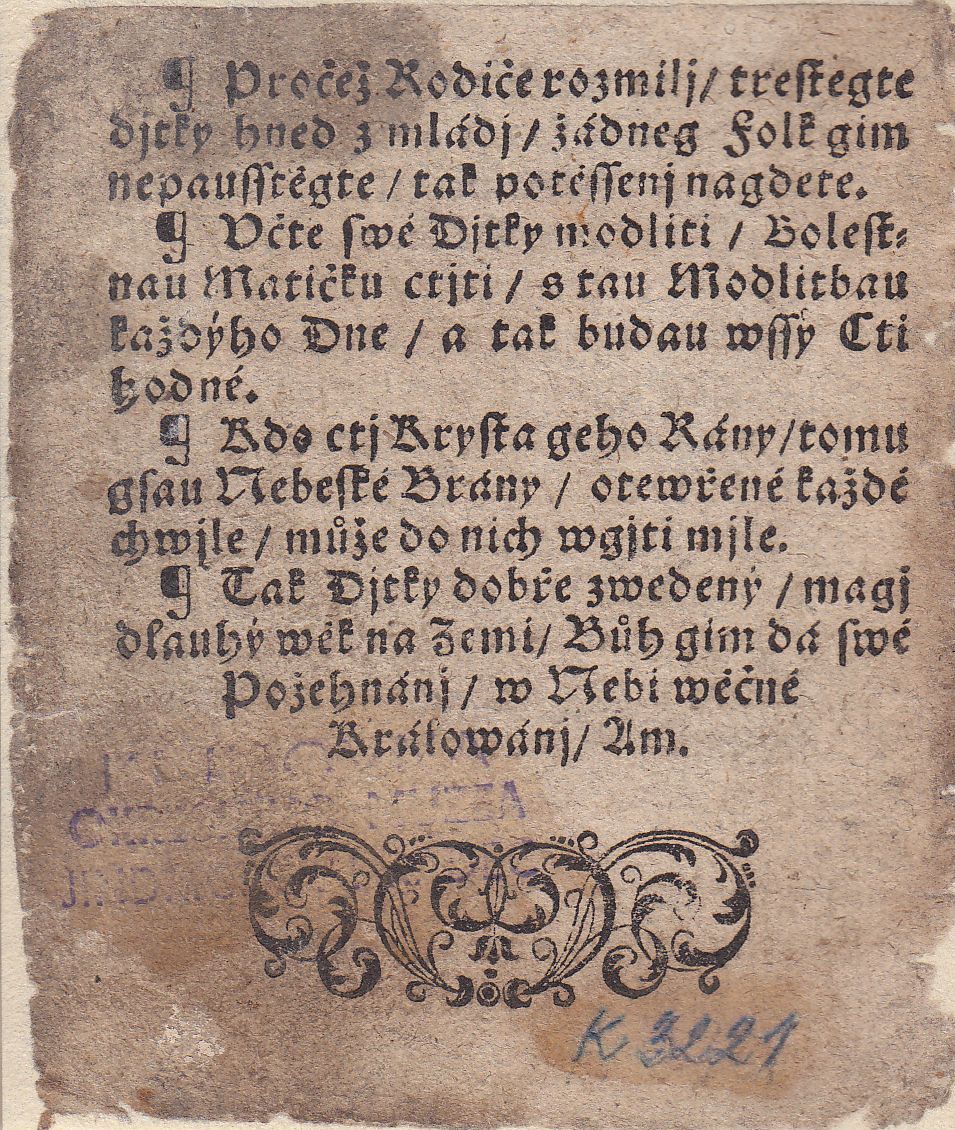 ¶ Pročež Rodiče rozmilj/ tresťegte
djtky hned z mládj/ žádneg Folk gim
nepausstěgte/ tak potěssenj nagdete.
¶ Včte swé Djtky modliti/ Bolest-
nau Matičku ctjti/ s tau Modlitbau
každýho Dne/ a tak budau wssy Cti
hodné.
¶ Kdo ctj Krysta geho Rány/ tomu
gsau Nebeské Brány/ otewřené každé
chwjle/ může do nich wgjti mjle.
¶ Tak Djtky dobře zwedený/ magj
dlauhý wěk na Zemi/ Bůh gim dá swé
Požehnánj/ w Nebi wěčné
Králowánj/ Am.
MUZEA
K 3221